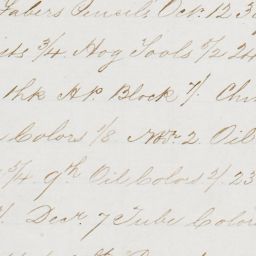 Fabers Pencils Oct. 12 3
3/4. Hog Tools 5/2 24
thk H.P. Block 7/.
Colors 1/8. Nov. 2. Oil
5/4. 9th Oil Colors 2/. 23
Decr. 7 Tube Colors